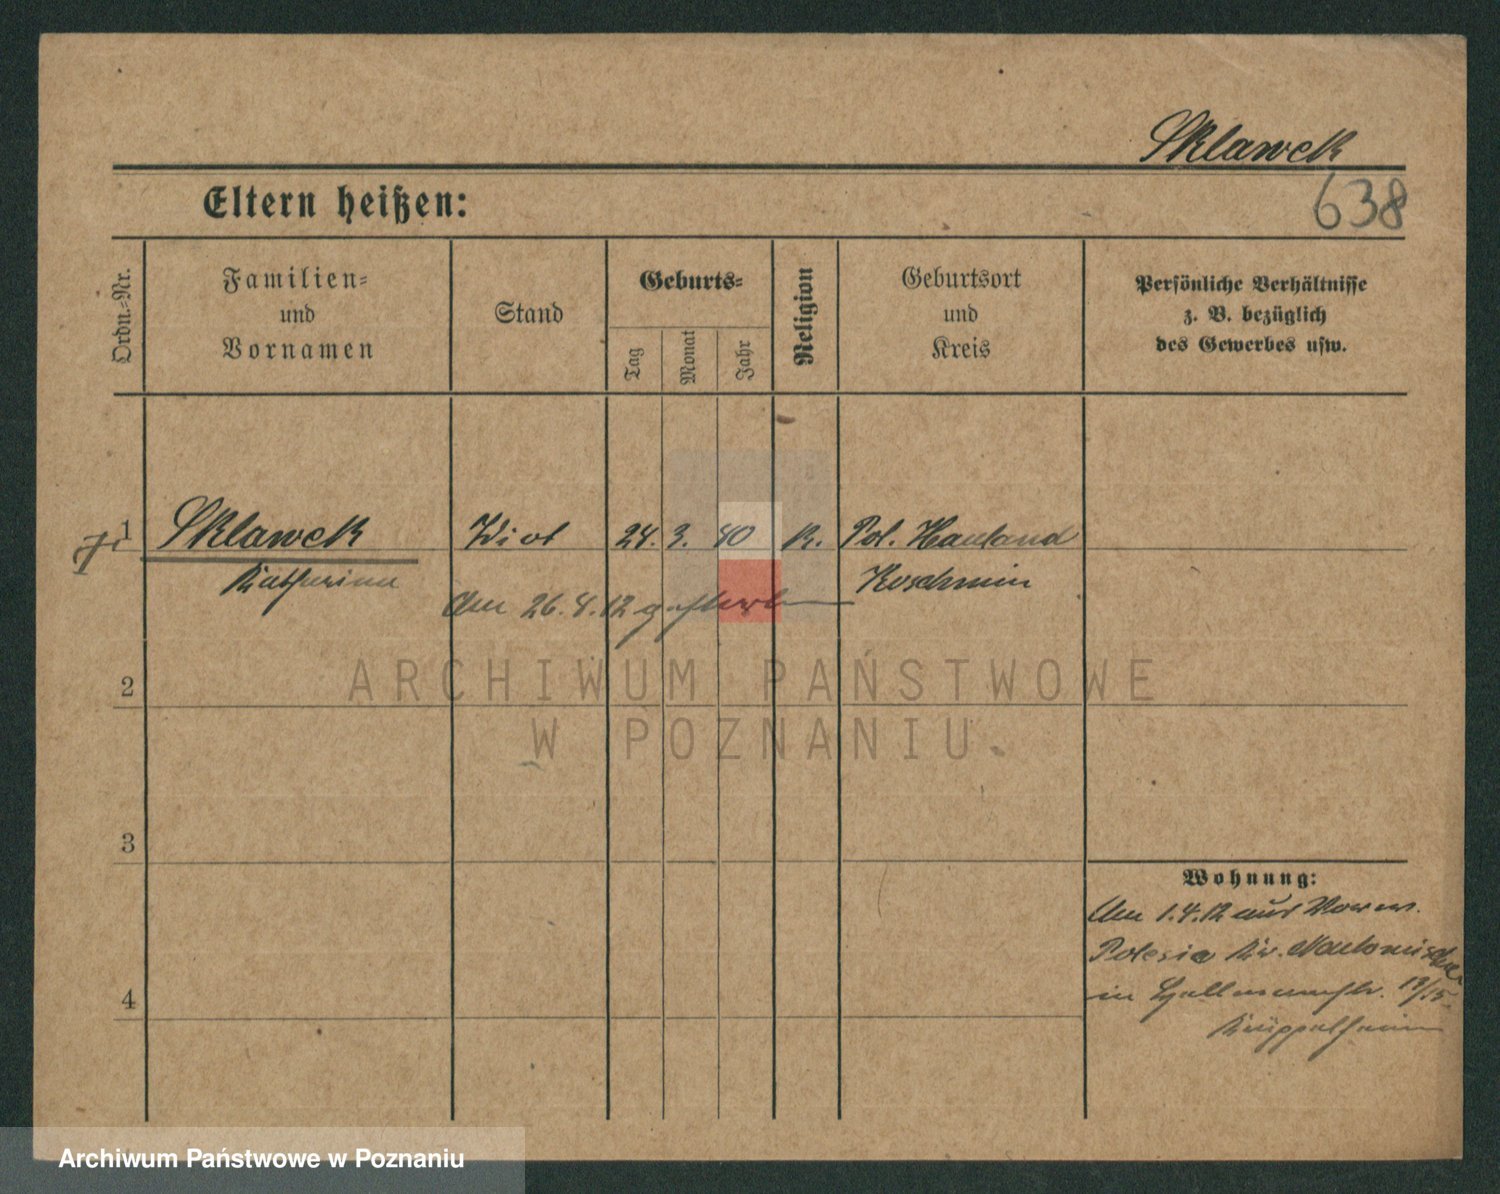 Sklawek
638
Eltern heißen:
Ordn.-Nr.
Familien-
und
Vornamen
Stand
Geburts-
Tag
Monat
Jahr
Religion
Geburtsort
und
Kreis
Persönliche Verhältnisse
z. B. bezüglich
des Gewerbes usw.
1 Sklawek 24. 3. 40 K. Pol. Hauland
Katharina Koschmin
Am 26. 4. 12 gestorben
2
3
4
Wohnung:
Am 1.4.12 aus Vorw.
Polesie Kr.
in 13/15.
Krüppelheim
ARCHIWUM PAŃSTWOWE
W POZNANIU.
Archiwum Państwowe w Poznaniu